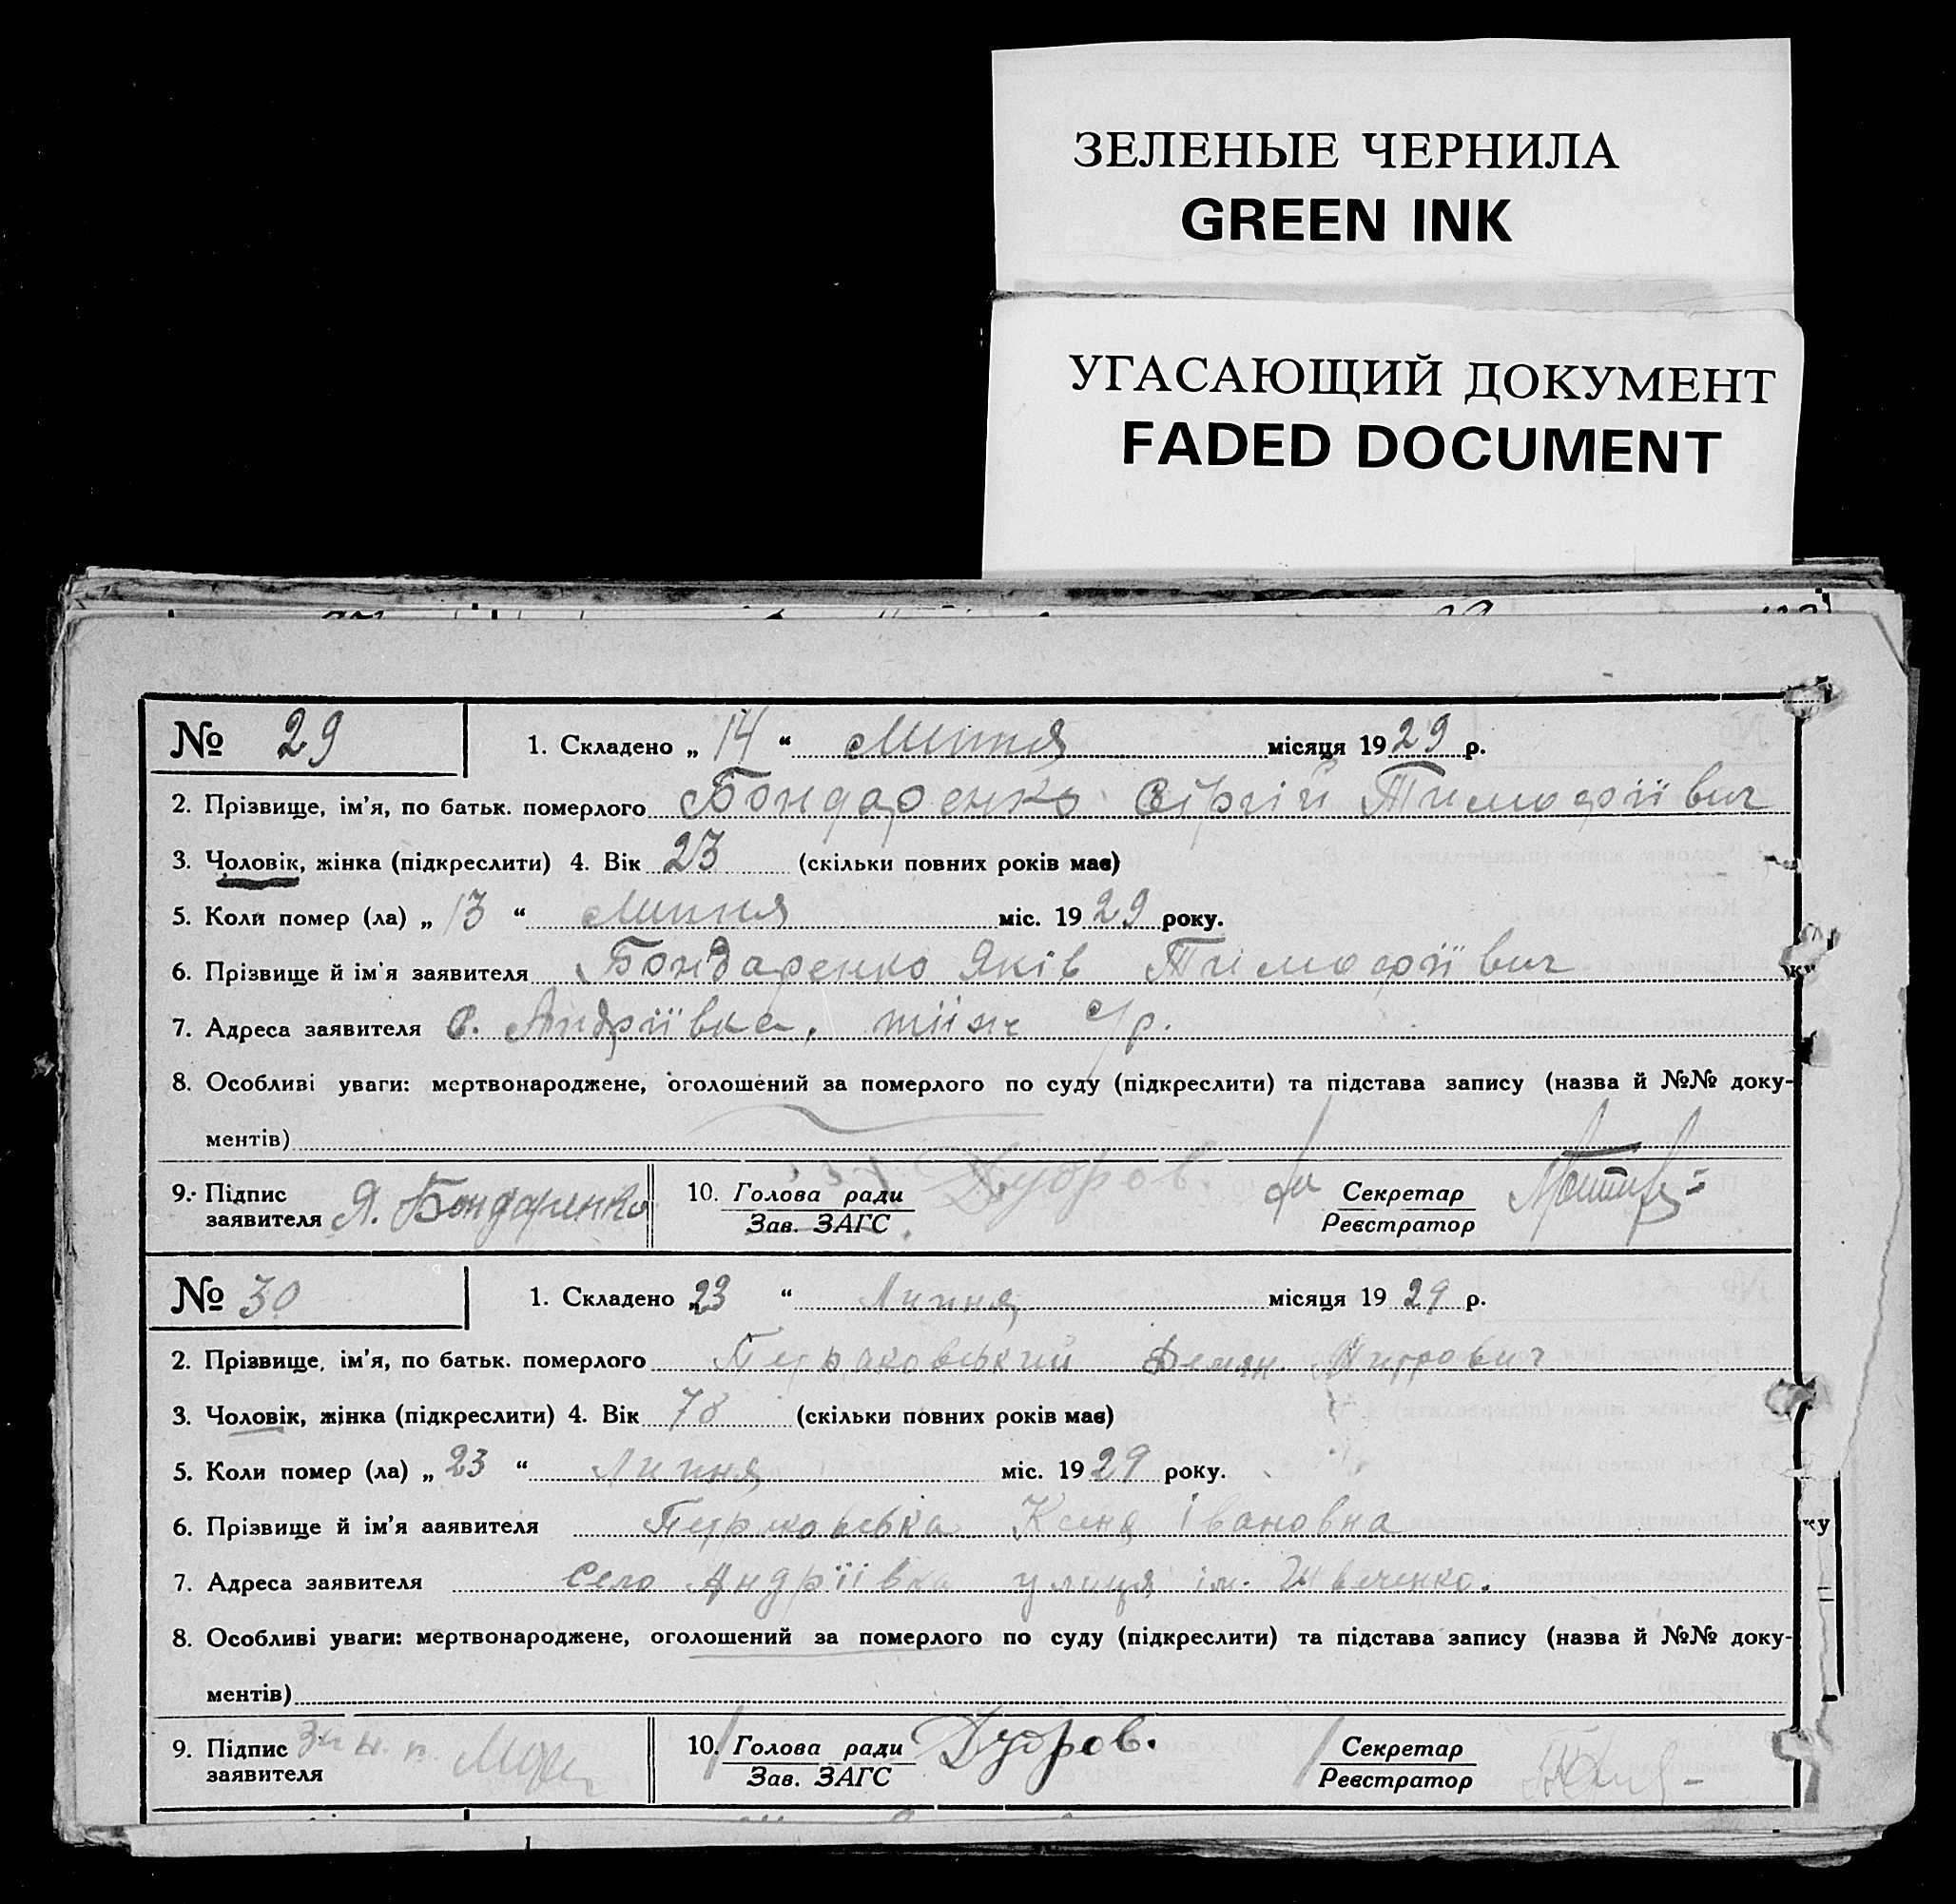 ЗЕЛЕНЫЕ ЧЕРНИЛА
GREEN INK
УГАСАЮЩИЙ ДОКУМЕНТ
FADED DOCUMENT
№ 29 1. Складено „ 14 “ Липня місяця 1929 р.
2. Прізвище, ім'я, по батьк. померлого Бондаренко Сіргій Тимофіївич
3. Чоловік, жінка (підкреслити) 4. Вік 23 (скільки повних років має)
5. Коли помер (ла) „ 13 “ Липня міс. 1929 року.
6. Прізвище й ім'я заявителя Бондаренко Яків Тимофіївич
7. Адреса заявителя с. Андріївка, тіїж с/р.
8. Особливі уваги: мертвонароджене, оголошений за померлого по суду (підкреслити) та підстава запису (назва й №№ доку-
ментів)
9. Підпис заявителя Я. Бондаренко 10. Голова ради Зав. ЗАГС Дубров. Секретар Реєстратор
№ 30 1. Складено 23 “ Липня місяця 1929 р.
2. Прізвище, ім'я, по батьк. померлого Демян
3. Чоловік, жінка (підкреслити) 4. Вік 78 (скільки повних років має)
5. Коли помер (ла) „ 23 “ Липня міс. 1929 року.
6. Прізвище й ім'я ааявителя Івановна
7. Адреса заявителя Село Андріївка улиця ім. Шевченко.
8. Особливі уваги: мертвонароджене, оголошений за померлого по суду (підкреслити) та підстава запису (назва й №№ доку-
ментів)
9. Підпис заявителя 10. Голова ради Зав. ЗАГС Дубров. Секретар Реєстратор